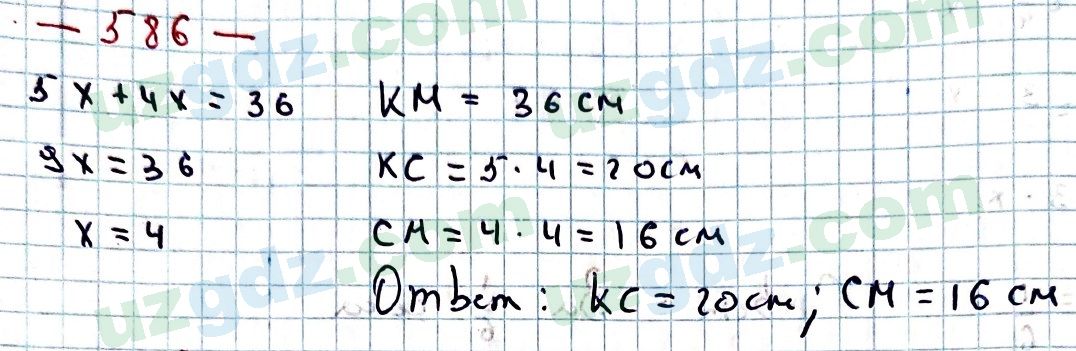 — 586 —
5x + 4x = 36 KM = 36 см
9x = 36 KC = 5 · 4 = 20 см
x = 4 CM = 4 · 4 = 16 см
Ответ: KC = 20 см; CM = 16 см
uzgdz.com
uzgdz.com
uzgdz.com
uzgdz.com